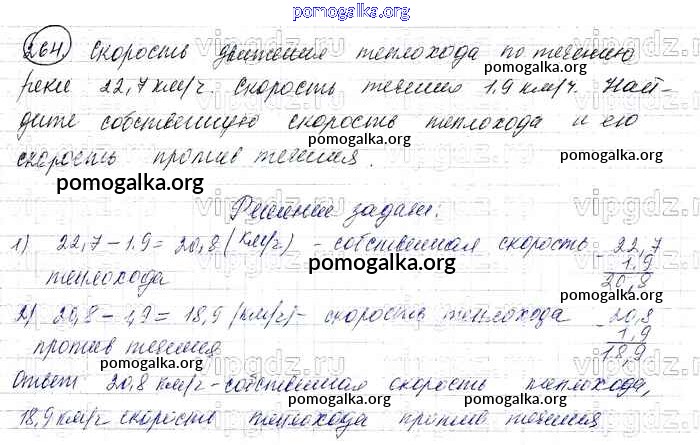 pomogalka.org
264. Скорость движения теплохода по течению
реки 22,7 км/ч. Скорость течения 1.9 км/ч. Най-
дите собственную скорость теплохода и его
скорость против течения.
Решение задачи:
1) 22,7 - 1.9 = 20,8 (км/ч) - собственная скорость
теплохода
22,7
- 1.9
20,8
2) 20,8 - 1,9 = 18,9 (км/ч) - скорость теплохода
против течения
20,8
- 1,9
18,9
Ответ: 20,8 км/ч - собственная скорость теплохода,
18,9 км/ч скорость теплохода против течения
pomogalka.org
pomogalka.org
pomogalka.org
pomogalka.org
pomogalka.org
pomogalka.org
pomogalka.org
pomogalka.org
pomogalka.org
vipgdz.ru
vipgdz.ru
vipgdz.ru